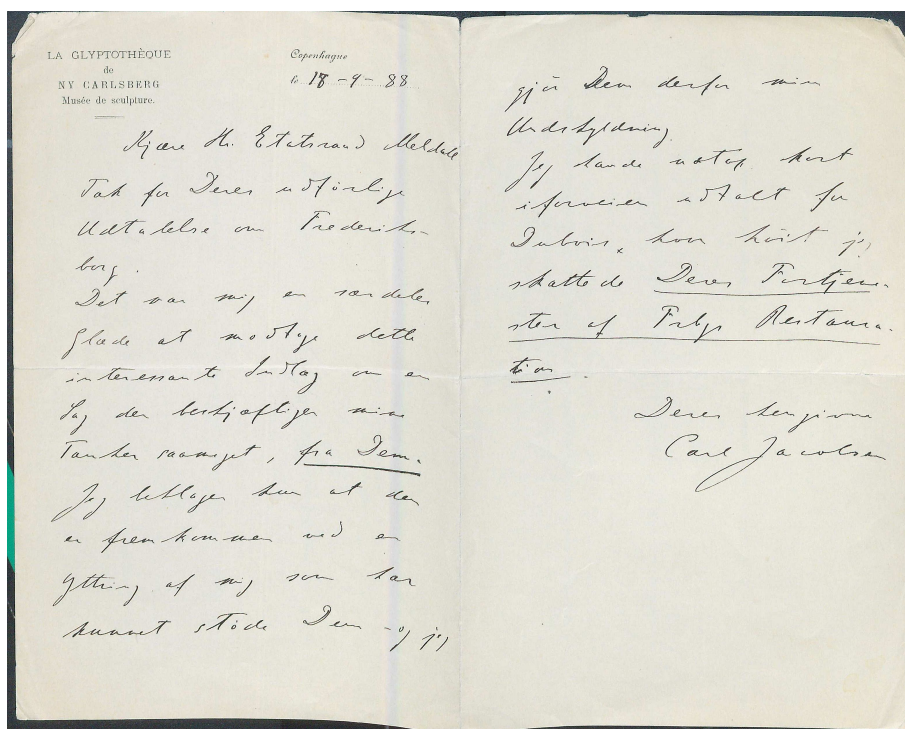 LA GLYPTOTHÈQUE
de
NY CARLSBERG
Musée de sculpture.
Copenhague
le 18-9-88
Kjære Hr. Etatsraad Meldahl
Tak for Deres udførlige
Udtalelse om Frederiks-
borg.
Det var mig en særdeles
Glæde at modtage dette
interessante Indlæg om en
Sag der beskjæftiger mine
Tanker saameget, fra Dem.
Jeg beklager kun at den
er fremkommen ved en
Yttring af mig som har
kunnet støde Dem - og jeg
gjør Dem derfor min
Undskyldning.
Jeg havde netop kort
iforveien udtalt for
Dubois, hvor høit jeg
skattede Deres Fortjene-
ster af Frbgs Restaura-
tion.
Deres hengivne
Carl Jacobsen